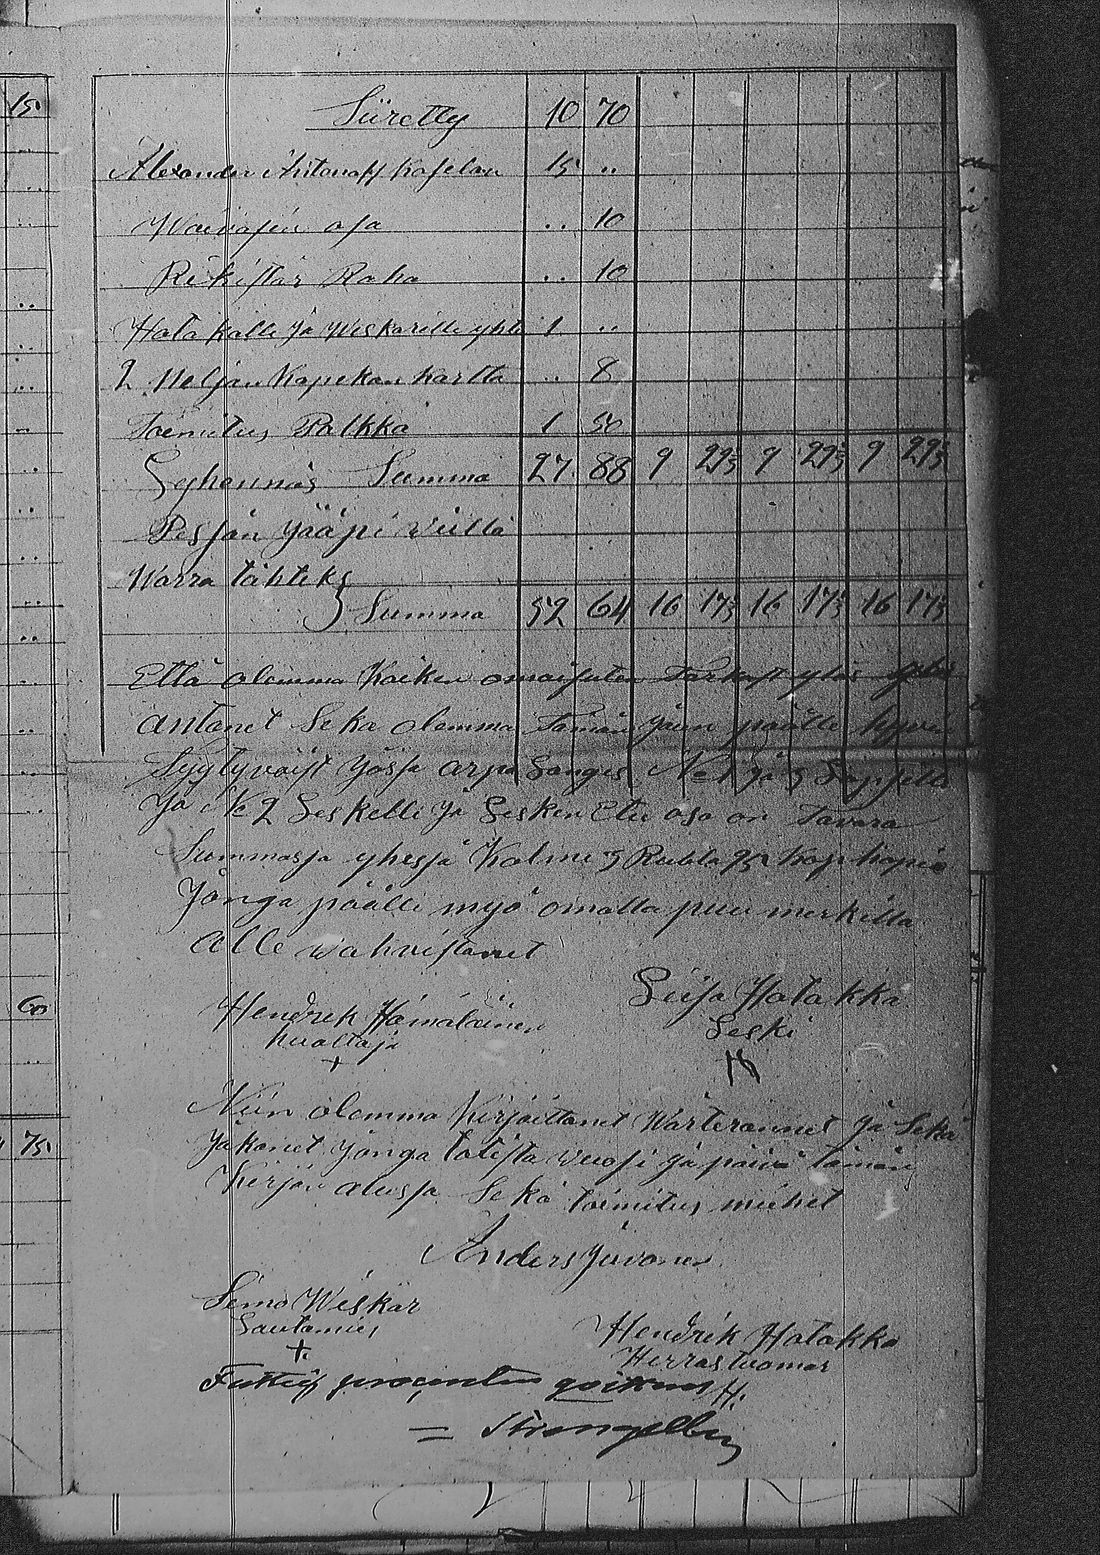 15.
Siiretty 10 70
Alexander Antonoff Kapelan 15 ..
Waivasiin osa .. 10
Rekistär Raha .. 10
Hatakalle ja Wiskarille yhte 1 ..
2 Neljän Kopekan Kartta .. 8
Toimitus Palkka 1 50
Syhennäs Summa 27. 88 9 29⅓ 9 29⅓ 9 29⅓
Pesjän jääpi viilla
Warra tähteks
Summa 52 64 16 17⅓ 16 17⅓ 16 17⅓
Että olemma Kaiken omaisuten Tarkast ylös
antanet Seka olemma Tämän jaun päälle hyvin
Tyytyväist jossa arpa Langes № 1 ja 3
ja № 2 Leskelle ja Lesken Etu osa on Tavara
Summasja yhesjä Kolme 3 Rubla 95 Kop
Jonga päälle myö omalla puu merkillä
alle vahvistanet
Hendrik Hämäläinen
Huoltaja
+
Leisa Hatakka
Leski
60
Niin olemma Kirjoittanet Wärteerannet ja Sekä
jakanet jonga totista vuosi ja päivä tämän
75.
Kirjan alussa Sekä toimitus miehet
Anders Juvonen
Simo Wiskar
Lautamies
+
Hendrik Hatakka
Herrastuomar
H.
Fattig procenten qvitteras
= Strengell